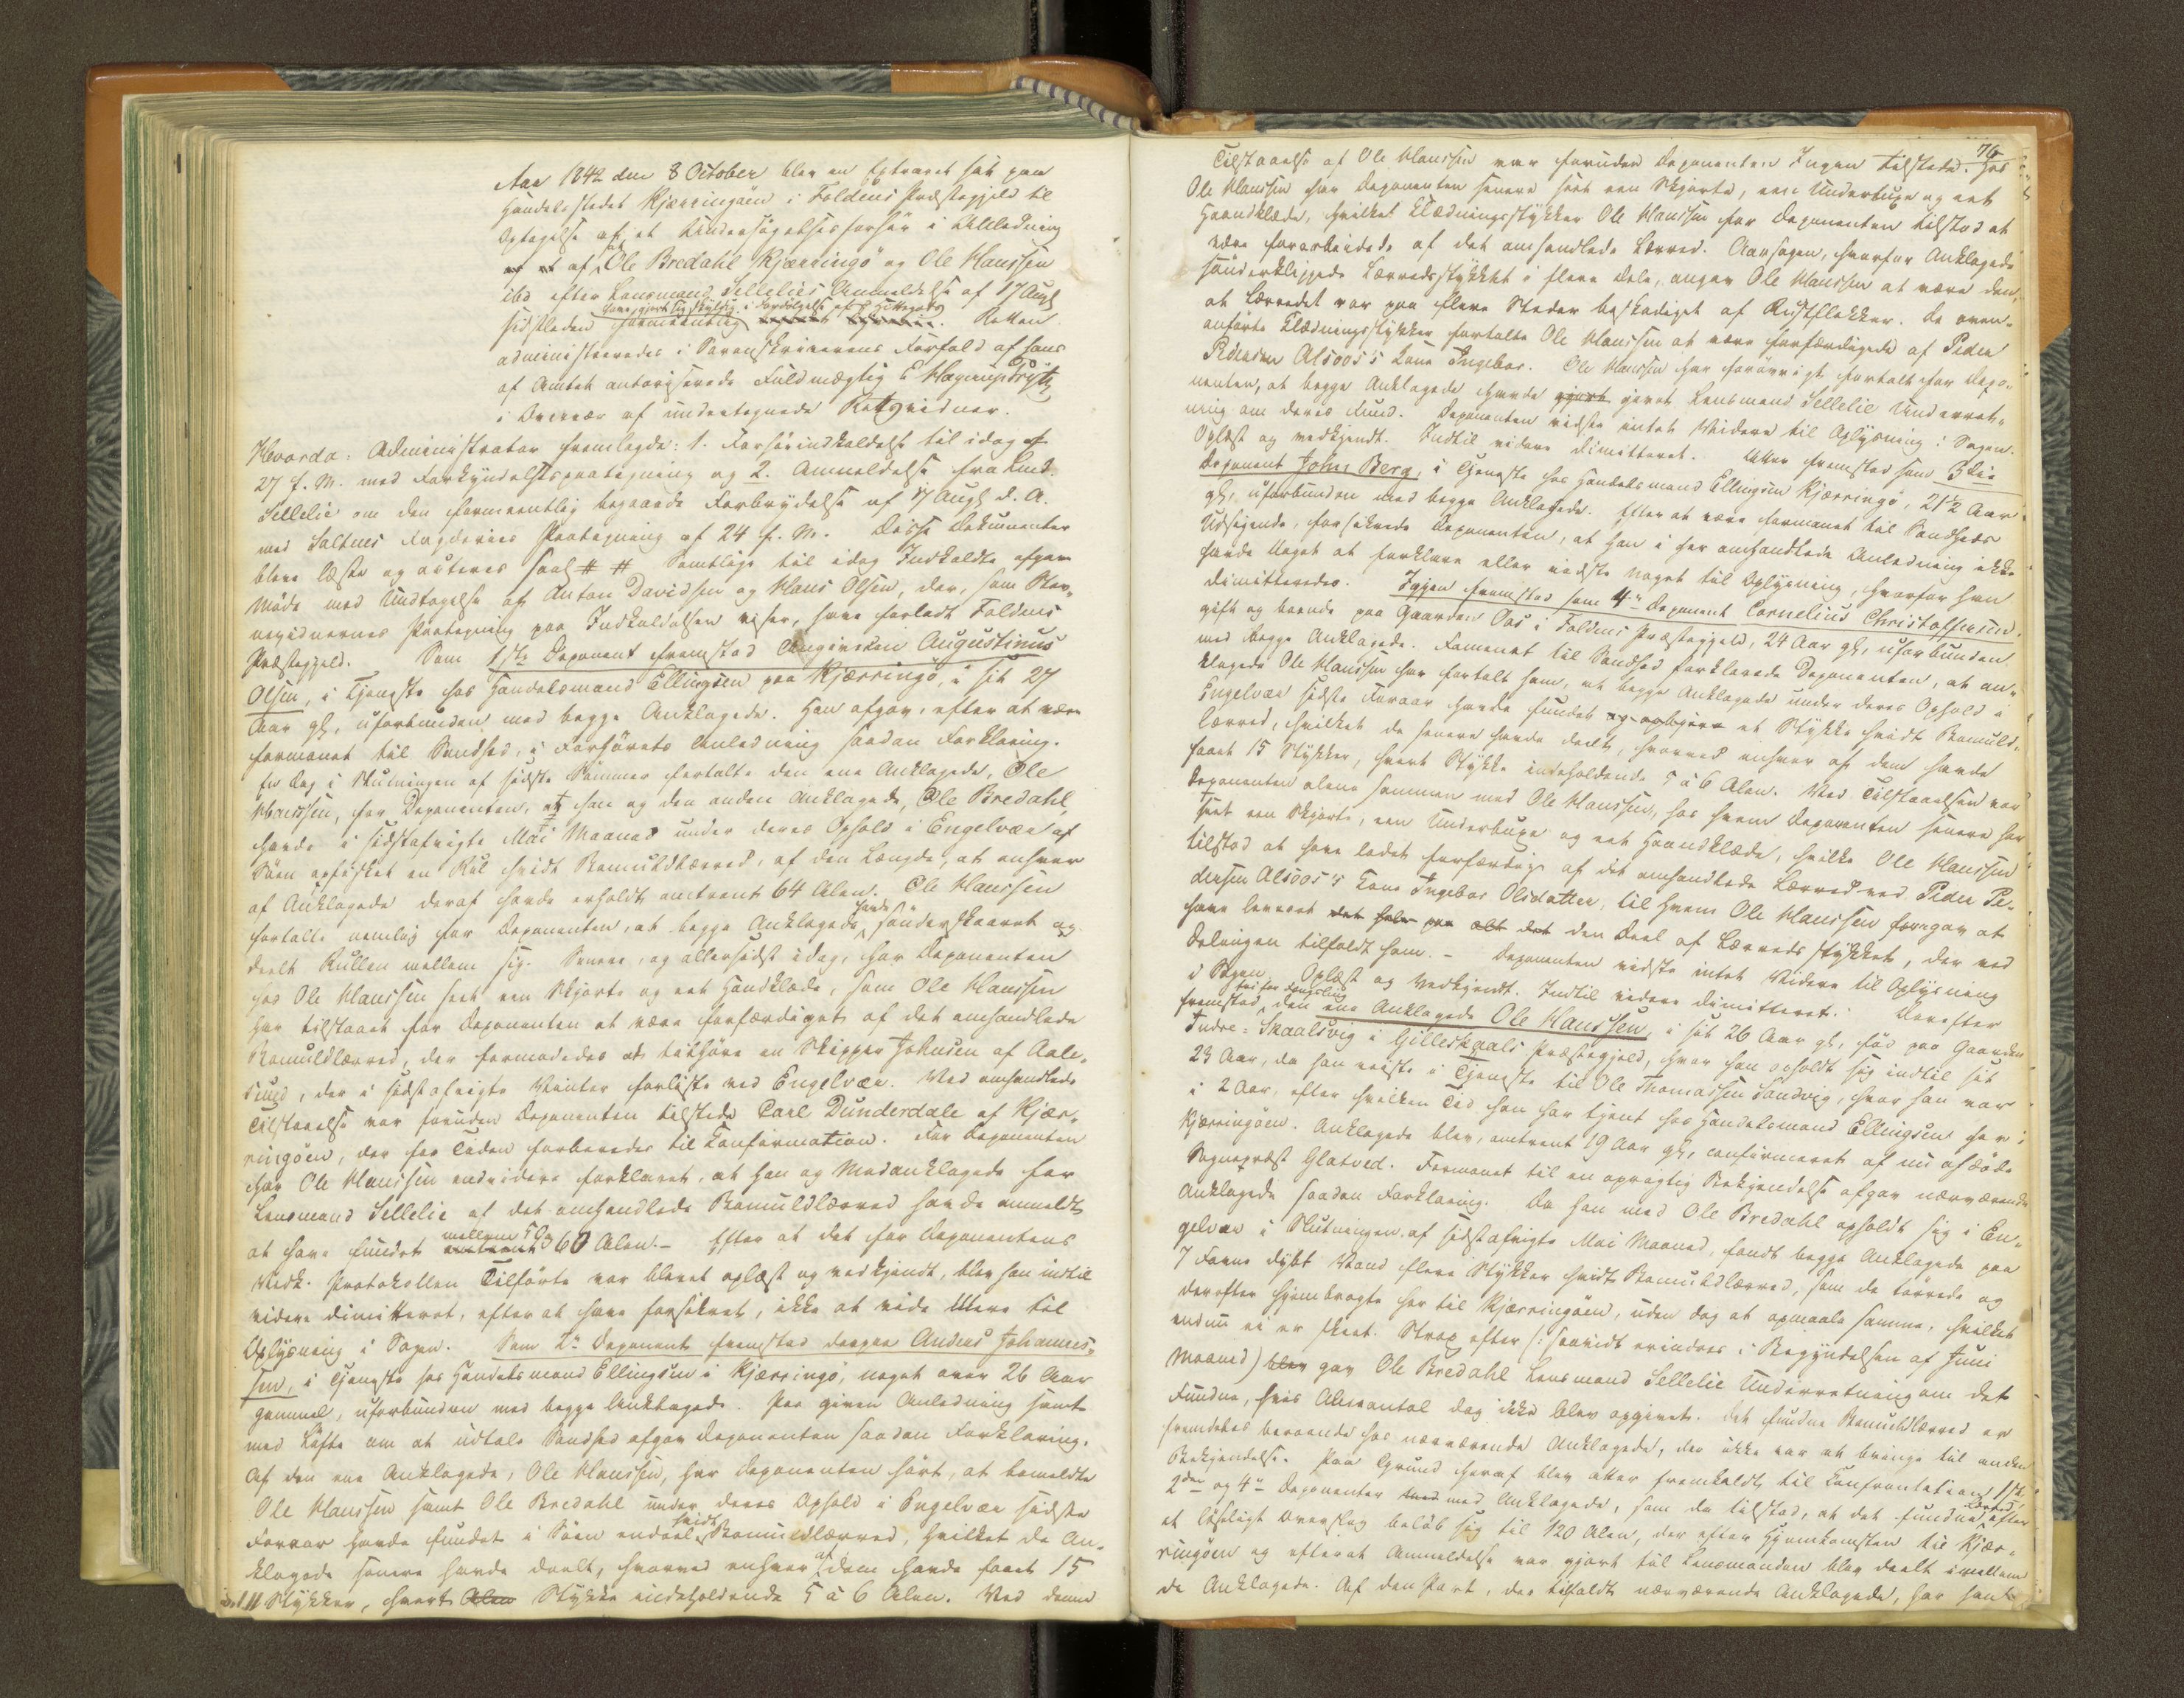 Aar 1842 den 8 October blev en Extraret sat paa
Handelsstedet Kjærringöen i Foldens Præstegjeld til
Optagelse af et Undersøgelsesforhör i Anledning
af at Ole Bredahl Kjærringö og Ole Hanssen
ibd efter Lensmand Sellelies Anmeldelse af 17 Augt
have gjort sig skyldig i Fordölgelse af Hittegods
sidstleden formeentlig . Retten
administreredes i Sorenskriverens Forfald af hans
af Amtet autoriserede Fuldmægtig E Hagerup Dryt
i Overvær af undertegnede Retsvidner.
Hvorda: Administrator fremlagde: 1. Forhörsindkaldelse til idag af
27 f. M. med Forkyndelsespaategning og 2. Anmeldelse fra Lmd.
Sellelie om den formeentlig begaaede Forbrydelse af 17 Augt d. A.
med Saltens Fogderies Paategning af 24 f. M. Disse Dokumenter
bleve læste og acteres saal # # Samtlige til idag Indkaldte afgav
Möde med Undtagelse af Anton Davidsen og Hans Olsen, der, som Stev-
nevidnernes Paategning paa Indkaldelsen viser, have forladt Foldens
Præstegjeld. Som 1ste Deponent fremstod Angiveren Augustinus
Olsen, i Tjeneste hos Handelsmand Ellingsen paa Kjærringö, i sit 27
Aar gl, uforbunden med begge Anklagede. Han afgav, efter at være
formanet til Sandhed, i Forhörets Anledning saadan Forklaring.
En Dag i Slutningen af sidste Sommer fortalte den ene Anklagede, Ole
Hanssen, for Deponenten, at han og den anden Anklagede, Ole Bredahl,
havde i sidstafvigte Mai Maaned under deres Ophold i Engelvær af
Söen opfisket en Rul hvidt Bomuldslærred, af den Længde, at enhver
af Anklagede deraf havde erholdt omtrent 64 Alen. Ole Hanssen
fortalte nemlig for Deponenten, at begge Anklagede havde sönderskaaret og
deelt Rullen mellem sig. Senere, og allersidst idag, har Deponenten
hos Ole Hanssen seet een Skjorte og eet Haandklæde, som Ole Hanssen
har tilstaaet for Deponenten at være forfærdiget af det omhandlede
Bomuldslærred, der formodedes at tilhöre en Skipper Johnsen af Aale-
sund, der i sidstafvigte Vinter forliste ved Engelvær. Ved omhandlede
Tilstaaelse var foruden Deponenten tilstede Carl Dunderdale af Kjær-
ringöen, der for Tiden forberedes til Confirmation. For Deponenten
har Ole Hanssen endvidere forklaret, at han og Medanklagede for
Lensmand Sellelie at det omhandlede Bomuldslærred havde anmeldt
at have fundet mellem 50 og 60 Alen. — Efter at det for Deponentens
Vedk. Protokollen Tilförte var blevet oplæst og vedkjendt, blev han indtil
videre dimitteret, efter at have forsikret, ikke at vide Mere til
Oplysning i Sagen. Som 2den Deponent fremstod derpaa Anders Johannes-
sen, i Tjeneste hos Handelsmand Ellingsen i Kjærringö, noget over 26 Aar
gammel, uforbunden med begge Anklagede. Paa given Anledning samt
med Löfte om at udtale Sandhed afgav Deponenten saadan Forklaring.
Af den ene Anklagede, Ole Hanssen, har Deponenten hört, at bemeldte
Ole Hanssen samt Ole Bredahl under deres Ophold i Engelvær sidste
Foraar havde fundet i Söen endeel hvidt Bomuldslærred, hvilket de An-
klagede senere havde deelt, hvorved enhver af dem havde faaet 15
Stykker, hvert Alen Stykke indeholdende 5 à 6 Alen. Ved denne
76
Tilstaaelse af Ole Hanssen var foruden Deponenten Ingen tilstede. Hos
Ole Hanssen har Deponenten senere seet een Skjorte, een Underbuxe og eet
Haandklæde, hvilket Klædningsstykker Ole Hanssen for Deponenten tilstod at
være forarbeidede af det omhandlede Lærred. Aarsagen, hvorfor Anklagede
sönderklippede Lærredsstykket i flere Dele, angav Ole Hanssen at være den,
at Lærredet var paa flere Steder beskadiget af Rustflekker. De oven-
anförte Klædningsstykker fortalte Ole Hanssen at være forfærdigede af Peder
Pedersen Alsoos's Kone Ingebor. Ole Hanssen har forövrigt fortalt for Depo-
nenten, at begge Anklagede havde gjort givet Lensmand Sellelie Underret-
ning om deres Fund. Deponenten vidste intet Videre til Oplysning i Sagen.
Oplæst og vedkjendt. Indtil videre dimitteret. Atter fremstod som 3die
Deponent John Berg, i Tjeneste hos Handelsmand Ellingsen Kjærringö, 21½ Aar
gl, uforbunden med begge Anklagede. Efter at være formanet til Sandheds
Udsigende, forsikrede Deponenten, at han i her omhandlede Anledning ikke
havde Noget at forklare eller vidste noget til Oplysning, hvorfor han
dimitteredes. Igjen fremstod som 4de Deponent Cornelius Christoffersen,
gift og boende paa Gaarden Oos i Foldens Præstegjeld, 24 Aar gl, uforbunden
med begge Anklagede. Formanet til Sandhed forklarede Deponenten, at an-
klagede Ole Hanssen har fortalt ham, at begge Anklagede under deres Ophold i
Engelvær sidste Foraar havde fundet og opbjerg et Stykke hvidt Bomulds-
lærred, hvilket de senere havde deelt, hvorved enhver af dem havde
faaet 15 Stykker, hvert Stykke indeholdende 5 à 6 Alen. Ved Tilstaaelsen var
Deponenten alene sammen med Ole Hanssen, hos hvem Deponenten senere har
seet een Skjorte, een Underbuxe og eet Haandklæde, hvilke Ole Hanssen
tilstod at have ladet forfærdige af det omhandlede Lærred ved Peder Pe-
dersen Alsoos's Kone Ingebor Olsdatter, til hvem Ole Hanssen foregav at
have leveret det hele paa alt det den Deel af Lærredsstykket, der ved
Delingen tilfaldt ham. — Deponenten vidste intet Videre til Oplysning
i Sagen. Oplæst og Vedkjendt. Indtil videre dimitteret. Derefter
fremstod fri for Fængsling den ene Anklagede Ole Hanssen, i sit 26 Aar gl, föd paa Gaarden
Indre-Skaalsvig i Gilleskaals Præstegjeld, hvor han opholdt sig indtil sit
23 Aar, da han reiste i Tjeneste til Ole Thomassen Sandvig, hvor han var
i 2 Aar, efter hvilken Tid han har tjent hos Handelsmand Ellingsen her i
Kjærringöen. Anklagede blev, omtrent 19 Aar gl, confirmeret af nu afdöde
Sognepræst Glatved. Formanet til en oprigtig Bekjendelse afgav nærværende
Anklagede saadan Forklaring. Da han med Ole Bredahl opholdt sig i En-
gelvær i Slutningen af sidstafvigte Mai Maaned, fandt begge Anklagede paa
7 Favne dybt Vand flere Stykker hvidt Bomuldslærred, som de törrede og
derefter hjembragte her til Kjærringöen, uden dog at opmaale samme, hvilket
endnu ei er skeet. Strax efter (: saavidt erindres i Begyndelsen af Juni
Maaned) blev gav Ole Bredahl Lensmand Sellelie Underretning om det
Fundne, hvis Alenantal dog ikke blev opgivet. Det fundne Bomuldslærred er
fremdeles beroende hos nærværende Anklagede, der ikke var at bringe til anden
Bekjendelse. Paa Grund heraf blev atter fremkaldt, til Confrontation, 1ste,
2den og 4de Deponenter med Anklagede, som da tilstod, at det fundne Lærred efter
et löseligt Overslag belöb sig til 120 Alen, der efter Hjemkomsten til Kjær-
ringöen og efterat Anmeldelse var gjort til Lensmanden blev deelt imellem
de Anklagede. Af den Part, der tilfaldt nærværende Anklagede, har han